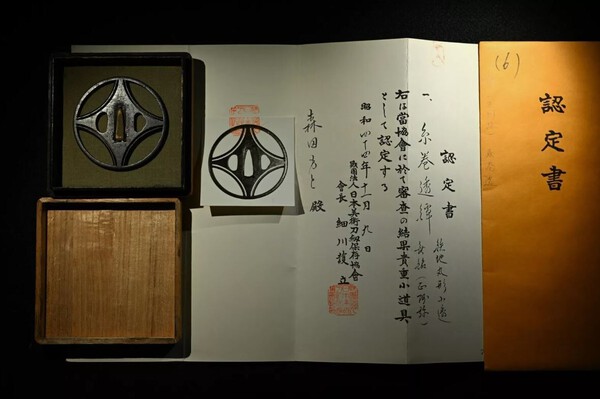 (6)
認定書
認定書
一、糸巻透鐔 無銘(正阿弥)
右は當協會に於て審査の結果貴重小道具
として認定する
昭和四十四年十一月九日
財団法人日本美術刀剣保存協會
會長 細川護立
森田 殿